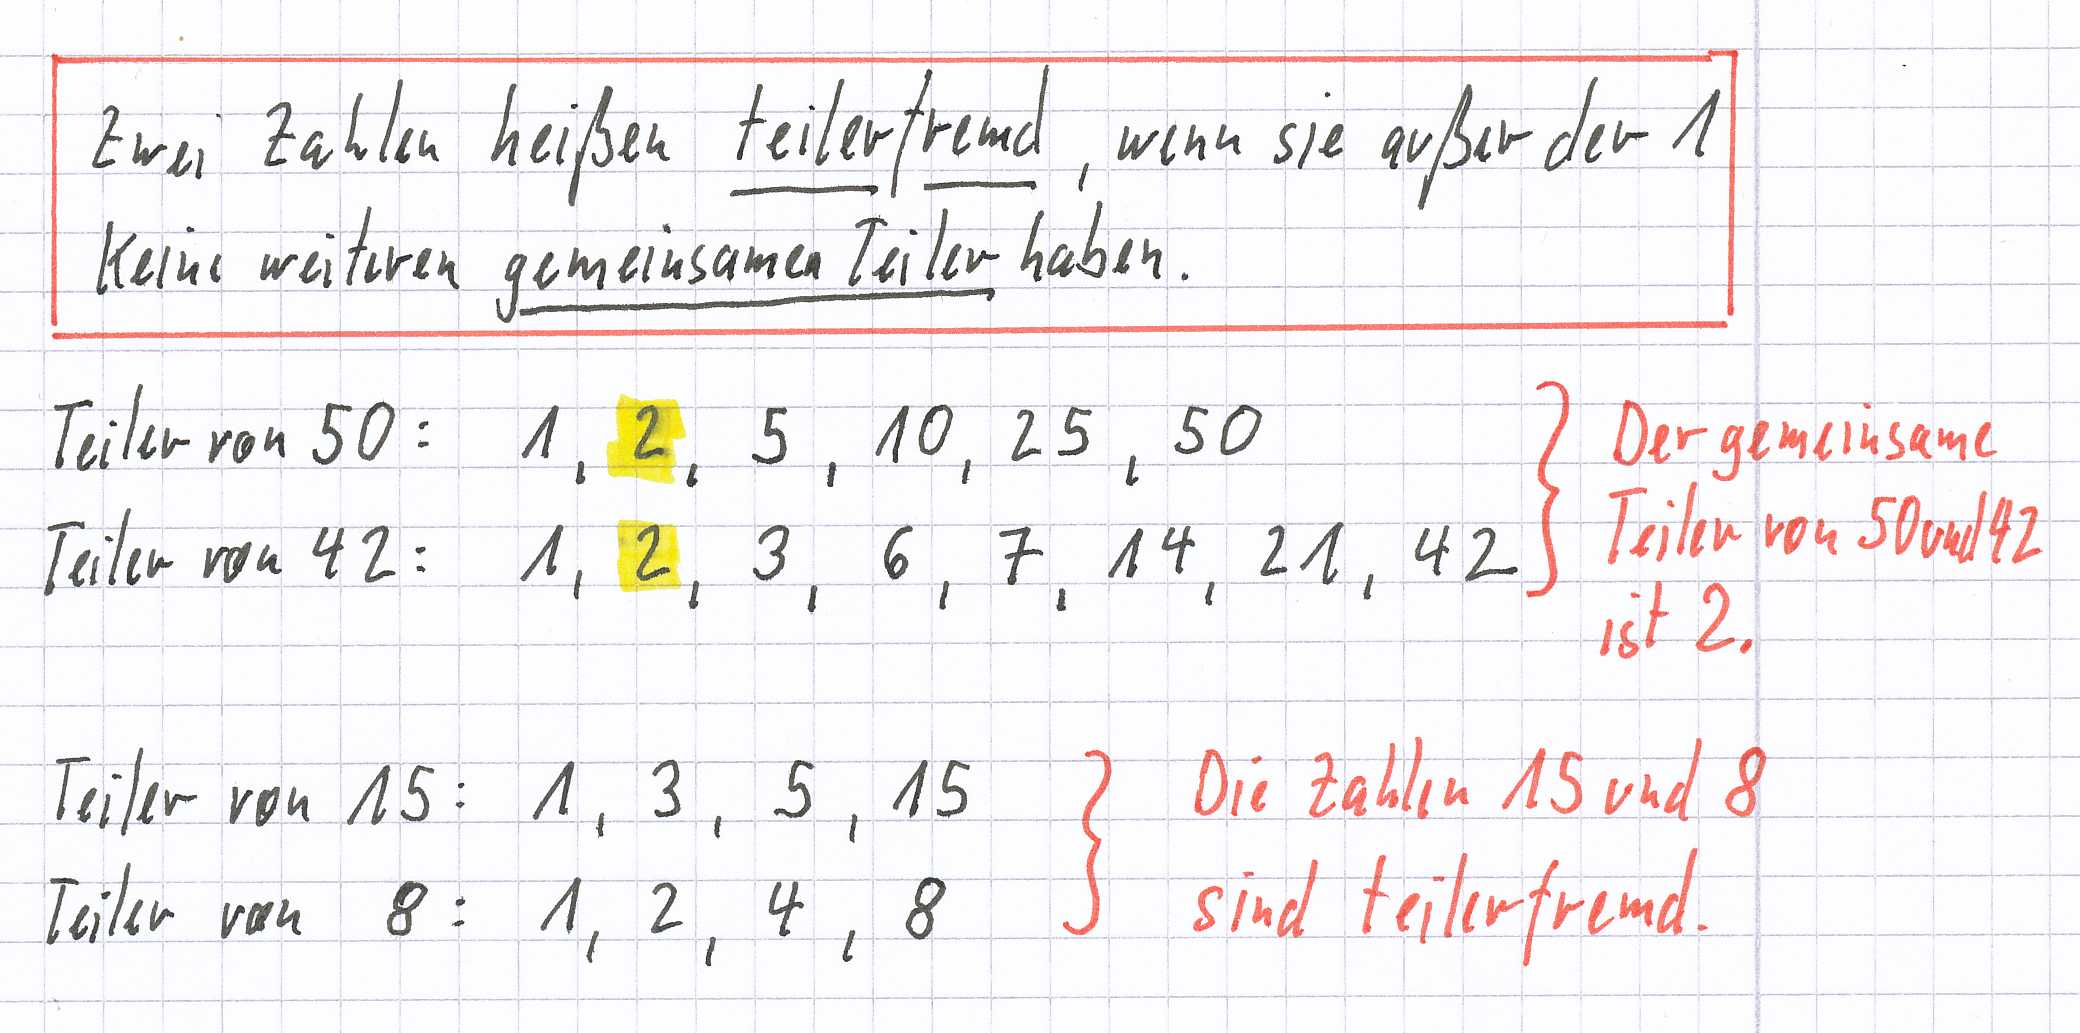 Zwei Zahlen heißen teilerfremd, wenn sie außer der 1
keine weiteren gemeinsamen Teiler haben.
Teiler von 50: 1, 2, 5, 10, 25, 50
Teiler von 42: 1, 2, 3, 6, 7, 14, 21, 42
Der gemeinsame
Teiler von 50 und 42
ist 2.
Teiler von 15: 1, 3, 5, 15
Teiler von 8: 1, 2, 4, 8
Die Zahlen 15 und 8
sind teilerfremd.